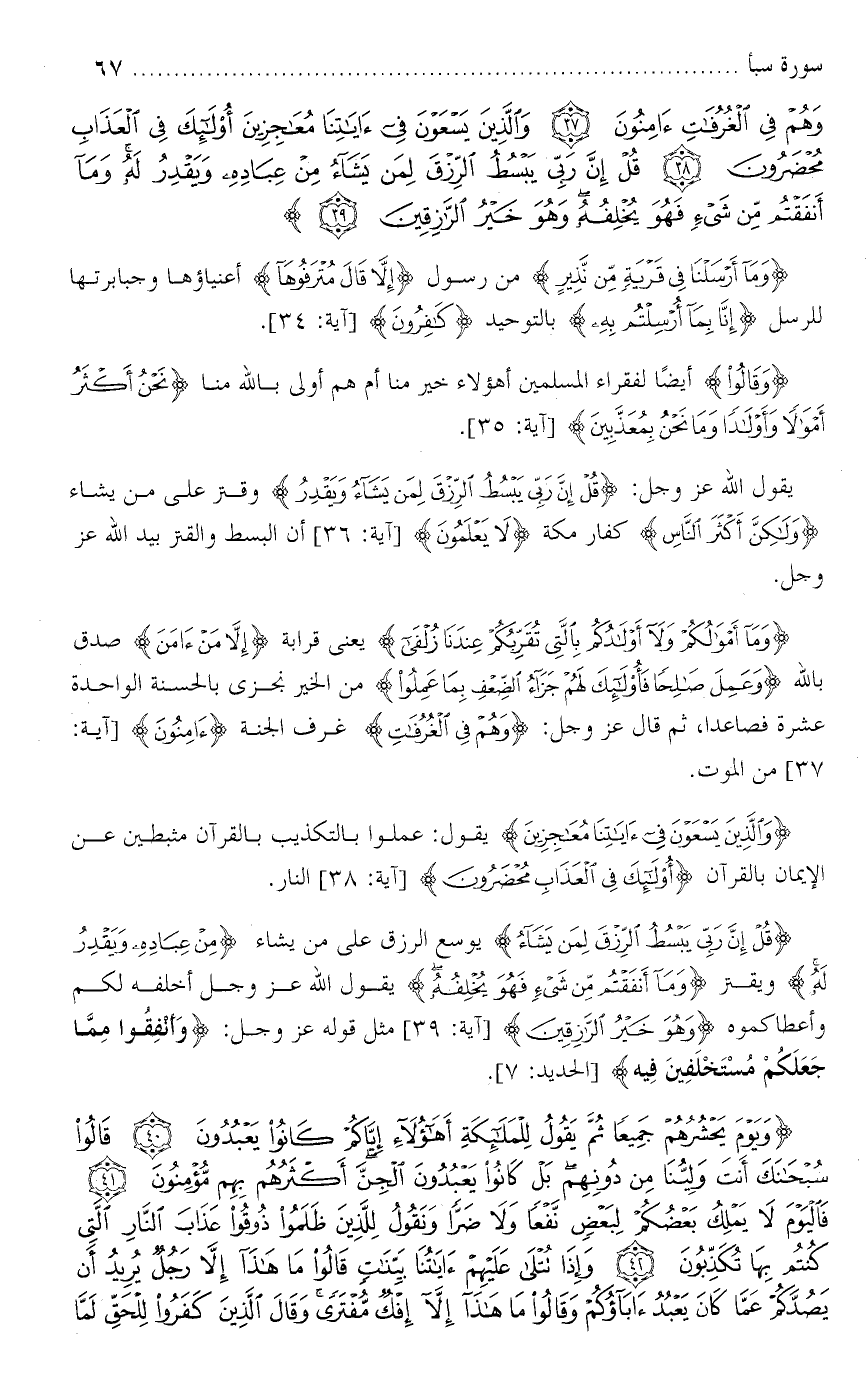 سورة سبأ ........................................................................ ٦٧
وَهُمْ فِى ٱلْغُرُفَٰتِ ءَامِنُونَ ٣٧ وَٱلَّذِينَ يَسْعَوْنَ فِىٓ ءَايَٰتِنَا مُعَٰجِزِينَ أُوْلَٰٓئِكَ فِى ٱلْعَذَابِ
مُحْضَرُونَ ٣٨ قُلْ إِنَّ رَبِّى يَبْسُطُ ٱلرِّزْقَ لِمَن يَشَآءُ مِنْ عِبَادِهِۦ وَيَقْدِرُ لَهُۥۚ وَمَآ
أَنفَقْتُم مِّن شَىْءٍ فَهُوَ يُخْلِفُهُۥۖ وَهُوَ خَيْرُ ٱلرَّٰزِقِينَ ٣٩ ﴾
﴿وَمَآ أَرْسَلْنَا فِى قَرْيَةٍ مِّن نَّذِيرٍ﴾ من رسول ﴿إِلَّا قَالَ مُتْرَفُوهَآ﴾ أعنياؤها وجبابرتها
للرسل ﴿إِنَّا بِمَآ أُرْسِلْتُم بِهِۦ﴾ بالتوحيد ﴿كَٰفِرُونَ﴾ [آية: ٣٤].
﴿وَقَالُواْ﴾ أيضًا لفقراء المسلمين أهؤلاء خير منا أم هم أولى بالله منا ﴿نَحْنُ أَكْثَرُ
أَمْوَٰلًا وَأَوْلَٰدًا وَمَا نَحْنُ بِمُعَذَّبِينَ﴾ [آية: ٣٥].
يقول الله عز وجل: ﴿قُلْ إِنَّ رَبِّى يَبْسُطُ ٱلرِّزْقَ لِمَن يَشَآءُ وَيَقْدِرُ﴾ وقتر على من يشاء
﴿وَلَٰكِنَّ أَكْثَرَ ٱلنَّاسِ﴾ كفار مكة ﴿لَا يَعْلَمُونَ﴾ [آية: ٣٦] أن البسط والقتر بيد الله عز
وجل.
﴿وَمَآ أَمْوَٰلُكُمْ وَلَآ أَوْلَٰدُكُم بِٱلَّتِى تُقَرِّبُكُمْ عِندَنَا زُلْفَىٰٓ﴾ يعنى قرابة ﴿إِلَّا مَنْ ءَامَنَ﴾ صدق
بالله ﴿وَعَمِلَ صَٰلِحًا فَأُوْلَٰٓئِكَ لَهُمْ جَزَآءُ ٱلضِّعْفِ بِمَا عَمِلُواْ﴾ من الخير نجزى بالحسنة الواحدة
عشرة فصاعدا، ثم قال عز وجل: ﴿وَهُمْ فِى ٱلْغُرُفَٰتِ﴾ غرف الجنة ﴿ءَامِنُونَ﴾ [آية:
٣٧] من الموت.
﴿وَٱلَّذِينَ يَسْعَوْنَ فِىٓ ءَايَٰتِنَا مُعَٰجِزِينَ﴾ يقول: عملوا بالتكذيب بالقرآن مثبطين عن
الإيمان بالقرآن ﴿أُوْلَٰٓئِكَ فِى ٱلْعَذَابِ مُحْضَرُونَ﴾ [آية: ٣٨] النار.
﴿قُلْ إِنَّ رَبِّى يَبْسُطُ ٱلرِّزْقَ لِمَن يَشَآءُ﴾ يوسع الرزق على من يشاء ﴿مِنْ عِبَادِهِۦ وَيَقْدِرُ
لَهُۥۚ﴾ ويقتر ﴿وَمَآ أَنفَقْتُم مِّن شَىْءٍ فَهُوَ يُخْلِفُهُۥۖ﴾ يقول الله عز وجل أخلفه لكم
وأعطاكموه ﴿وَهُوَ خَيْرُ ٱلرَّٰزِقِينَ﴾ [آية: ٣٩] مثل قوله عز وجل: ﴿وَأَنْفِقُوا مِمَّا
جَعَلَكُمْ مُسْتَخْلَفِينَ فِيهِ﴾ [الحديد: ٧].
﴿وَيَوْمَ يَحْشُرُهُمْ جَمِيعًا ثُمَّ يَقُولُ لِلْمَلَٰٓئِكَةِ أَهَٰٓؤُلَآءِ إِيَّاكُمْ كَانُواْ يَعْبُدُونَ ٤٠ قَالُواْ
سُبْحَٰنَكَ أَنتَ وَلِيُّنَا مِن دُونِهِمۖ بَلْ كَانُواْ يَعْبُدُونَ ٱلْجِنَّۖ أَكْثَرُهُم بِهِم مُّؤْمِنُونَ ٤١
فَٱلْيَوْمَ لَا يَمْلِكُ بَعْضُكُمْ لِبَعْضٍ نَّفْعًا وَلَا ضَرًّا وَنَقُولُ لِلَّذِينَ ظَلَمُواْ ذُوقُواْ عَذَابَ ٱلنَّارِ ٱلَّتِى
كُنتُم بِهَا تُكَذِّبُونَ ٤٢ وَإِذَا تُتْلَىٰ عَلَيْهِمْ ءَايَٰتُنَا بَيِّنَٰتٍ قَالُواْ مَا هَٰذَآ إِلَّا رَجُلٌ يُرِيدُ أَن
يَصُدَّكُمْ عَمَّا كَانَ يَعْبُدُ ءَابَآؤُكُمْ وَقَالُواْ مَا هَٰذَآ إِلَّآ إِفْكٌ مُّفْتَرًىۚ وَقَالَ ٱلَّذِينَ كَفَرُواْ لِلْحَقِّ لَمَّا